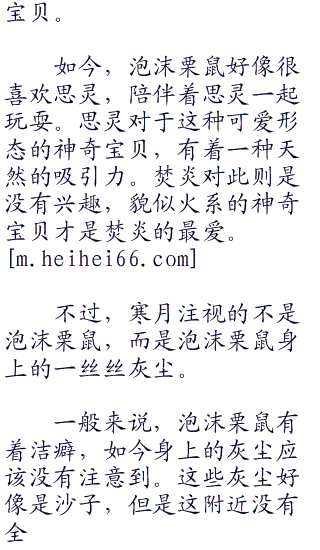 宝贝。
如今，泡沫栗鼠好像很
喜欢思灵，陪伴着思灵一起
玩耍。思灵对于这种可爱形
态的神奇宝贝，有着一种天
然的吸引力。焚炎对此则是
没有兴趣，貌似火系的神奇
宝贝才是焚炎的最爱。
[m.heihei66.com]
不过，寒月注视的不是
泡沫栗鼠，而是泡沫栗鼠身
上的一丝丝灰尘。
一般来说，泡沫栗鼠有
着洁癖，如今身上的灰尘应
该没有注意到。这些灰尘好
像是沙子，但是这附近没有
全